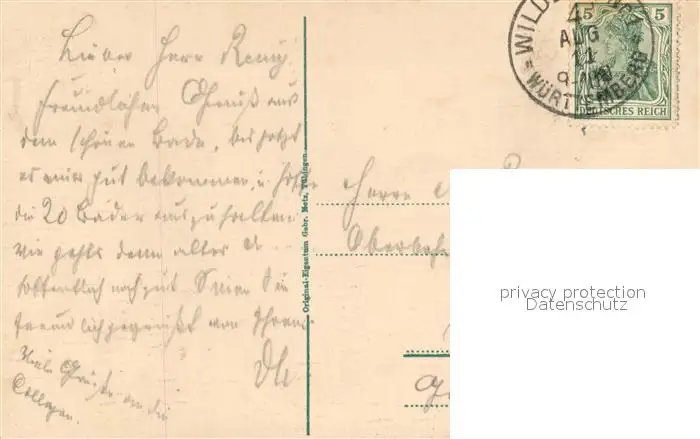 Lieber Herr Remy!
Freundlichen Gruß aus
dem schönen Bade, bis jetzt
es mir gut bekommen, u. hoffe
die 20 Bäder auszuhalten
wie gehts denn alter
hoffentlich noch gut Seien Sie
freundlich gegrüßt von Ihrem
Viele Grüße an die
Collegen.
Original-Eigentum Gebr. Metz, Tübingen
WILDBAD
4
AUG
11
9-10V
WÜRTTEMBERG
5 5
DEUTSCHES REICH
Herrn
privacy protection
Datenschutz